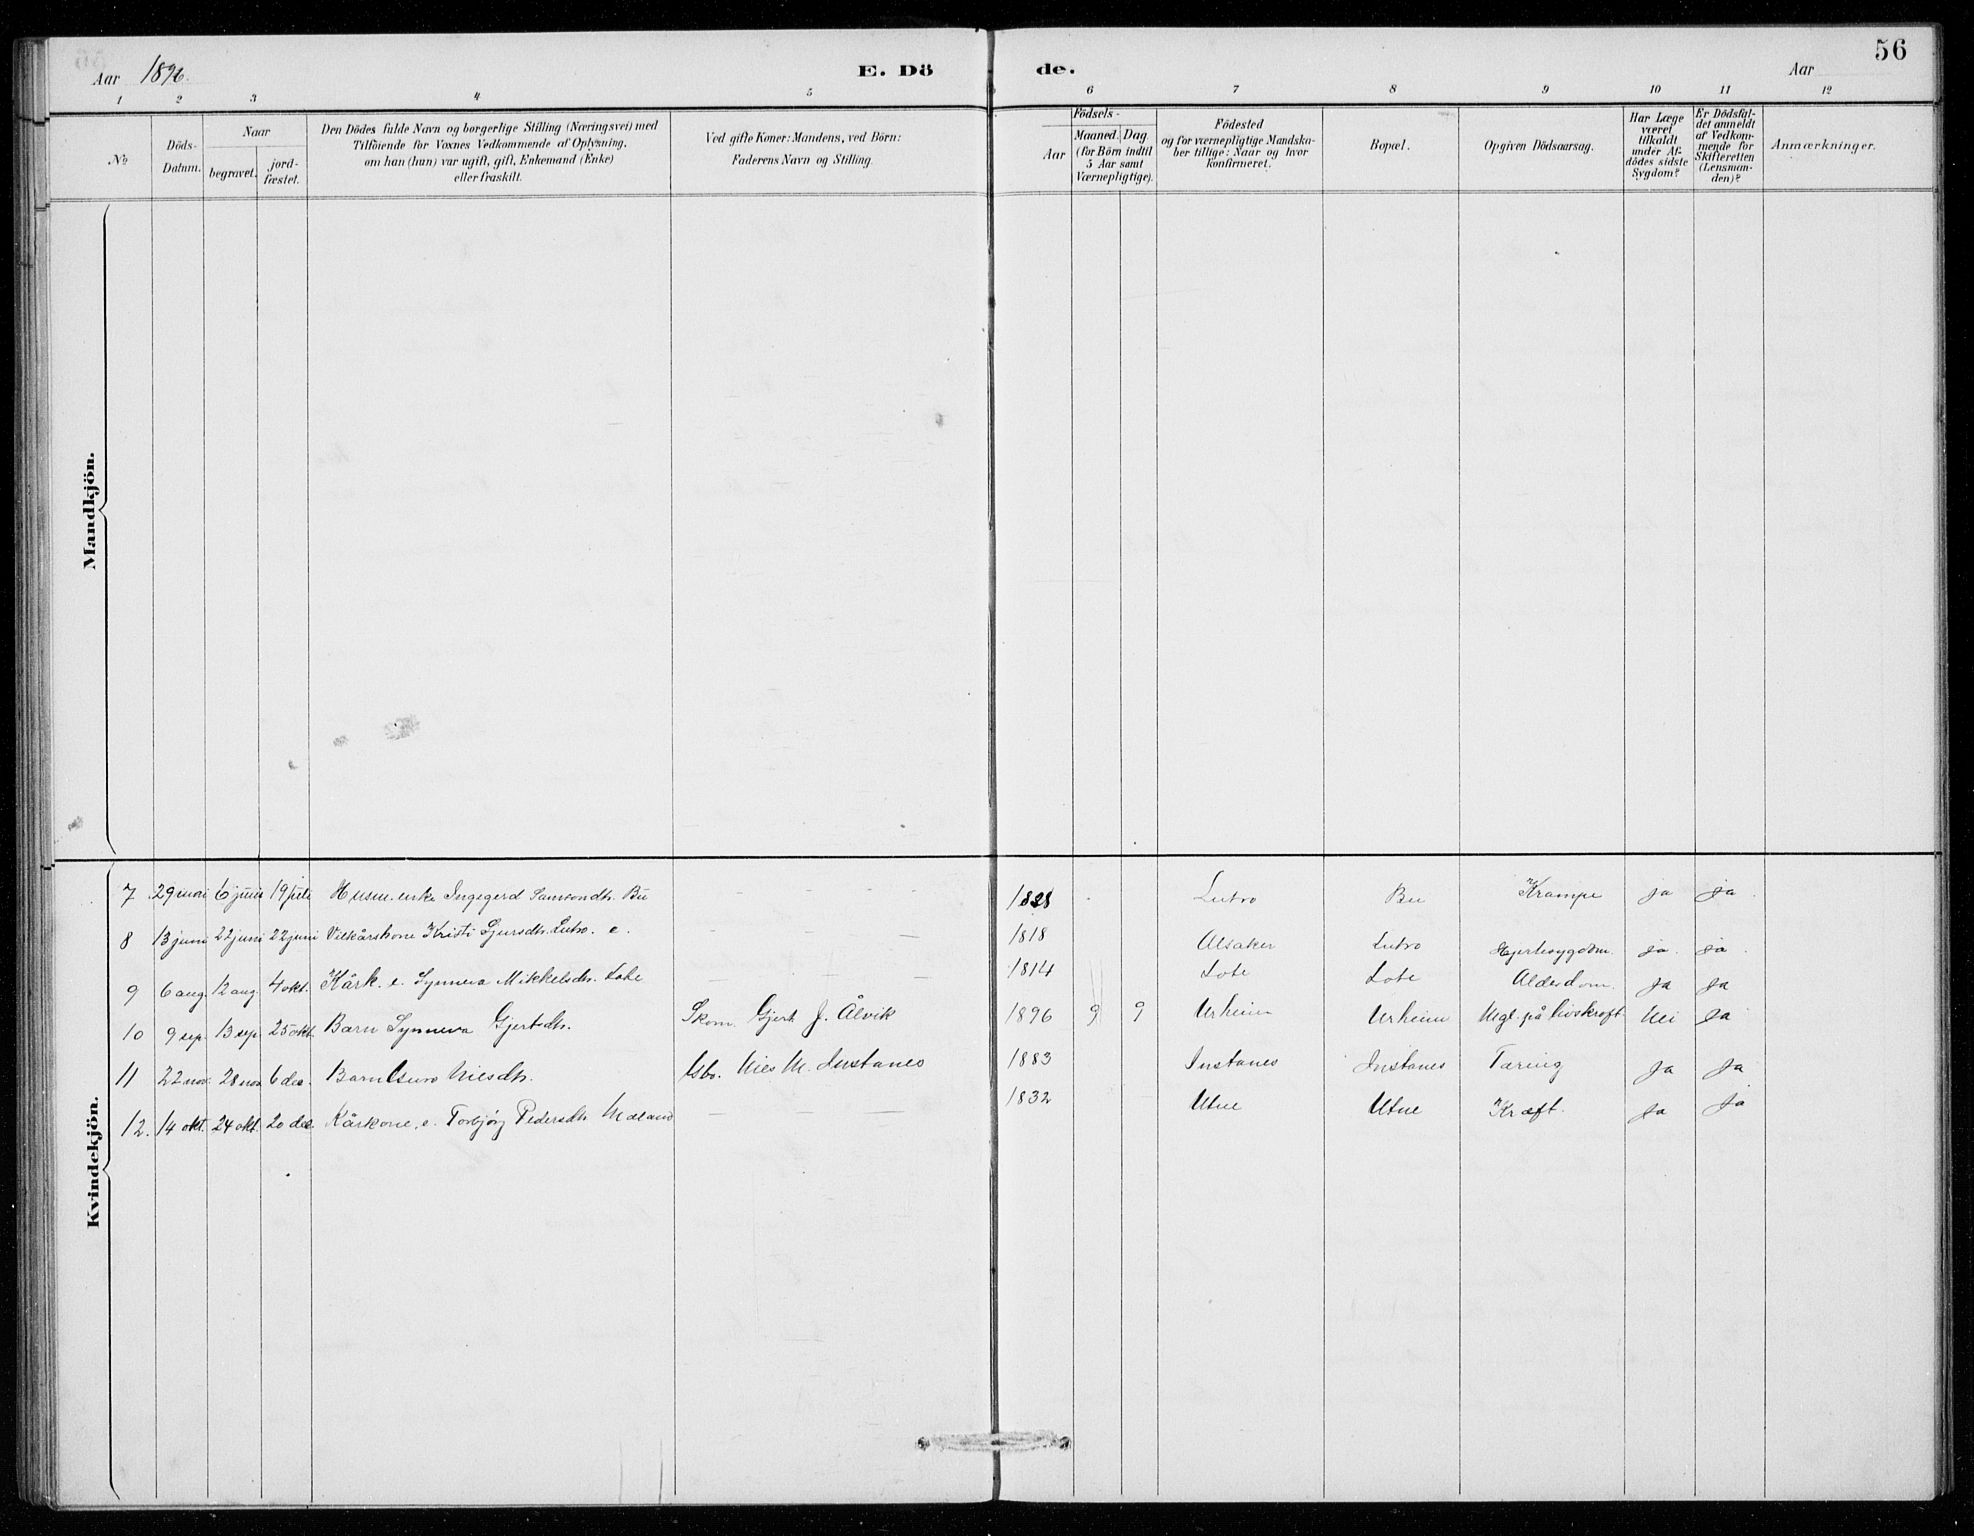 56
Aar 1896.
E. Dö
de.
Aar
1 2 3 4 5 6 7 8 9 10 11 12
No
Döds-
Datum.
Naar
begravet.
jord-
fæstet.
Den Dödes fulde Navn og borgerlige Stilling (Næringsvei) med
Tilföiende for Voxnes Vedkommende af Oplysning,
om han (hun) var ugift, gift, Enkemand (Enke)
eller fraskilt.
Ved gifte Koner: Mandens, ved Börn:
Faderens Navn og Stilling.
Födsels-
Aar
Maaned. Dag
(for Börn indtil
5 Aar samt
Værnepligtige).
Födested
og for værnepligtige Mandska-
ber tillige: Naar og hvor
konfirmeret.
Bopæl.
Opgiven Dödsaarsag.
Har Læge
været
tilkaldt
under Af-
dödes sidste
Sygdom?
Er Dödsfal-
det anmeldt
af Vedkom-
mende for
Skifteretten
(Lensman-
den)?
Anmærkninger.
Mandkjön.
Kvindekjön.
7 29 mai 6 juni 19 juli Husm. enke Ingegerd Samsondtr. Bu - - - 1828 Lutro Bu Krampe ja ja
8 13 juni 22 juni 22 juni Vilkårskone Kristi Sjursdtr. Lutro. e. 1818 Alsaker Lutro Hjertesygdom. ja. ja.
9 6 aug. 12 aug. 4 okt. Kårk. e. Synneva Mikkelsdtr. Lote - - - 1814 Lote Lote Alderdom. ja ja
10 9 sep. 13 sep. 25 okt. Barn Synneva Gjertsdtr. Skom. Gjert J. Ålvik 1896 9 9 Urheim Urheim Mgl. på livskraft Nei ja
11 22 nov. 28 nov. 6 dec. Barn Nilsdtr. Gbr. Nils M. Instanes 1883 Instanes Instanes Tæring ja ja
12. 14 okt. 24 okt. 20 dec. Kårkone, e. Torbjørg Pedersdtr. Mæland - - - 1832 Utne Utne Kræft. ja ja